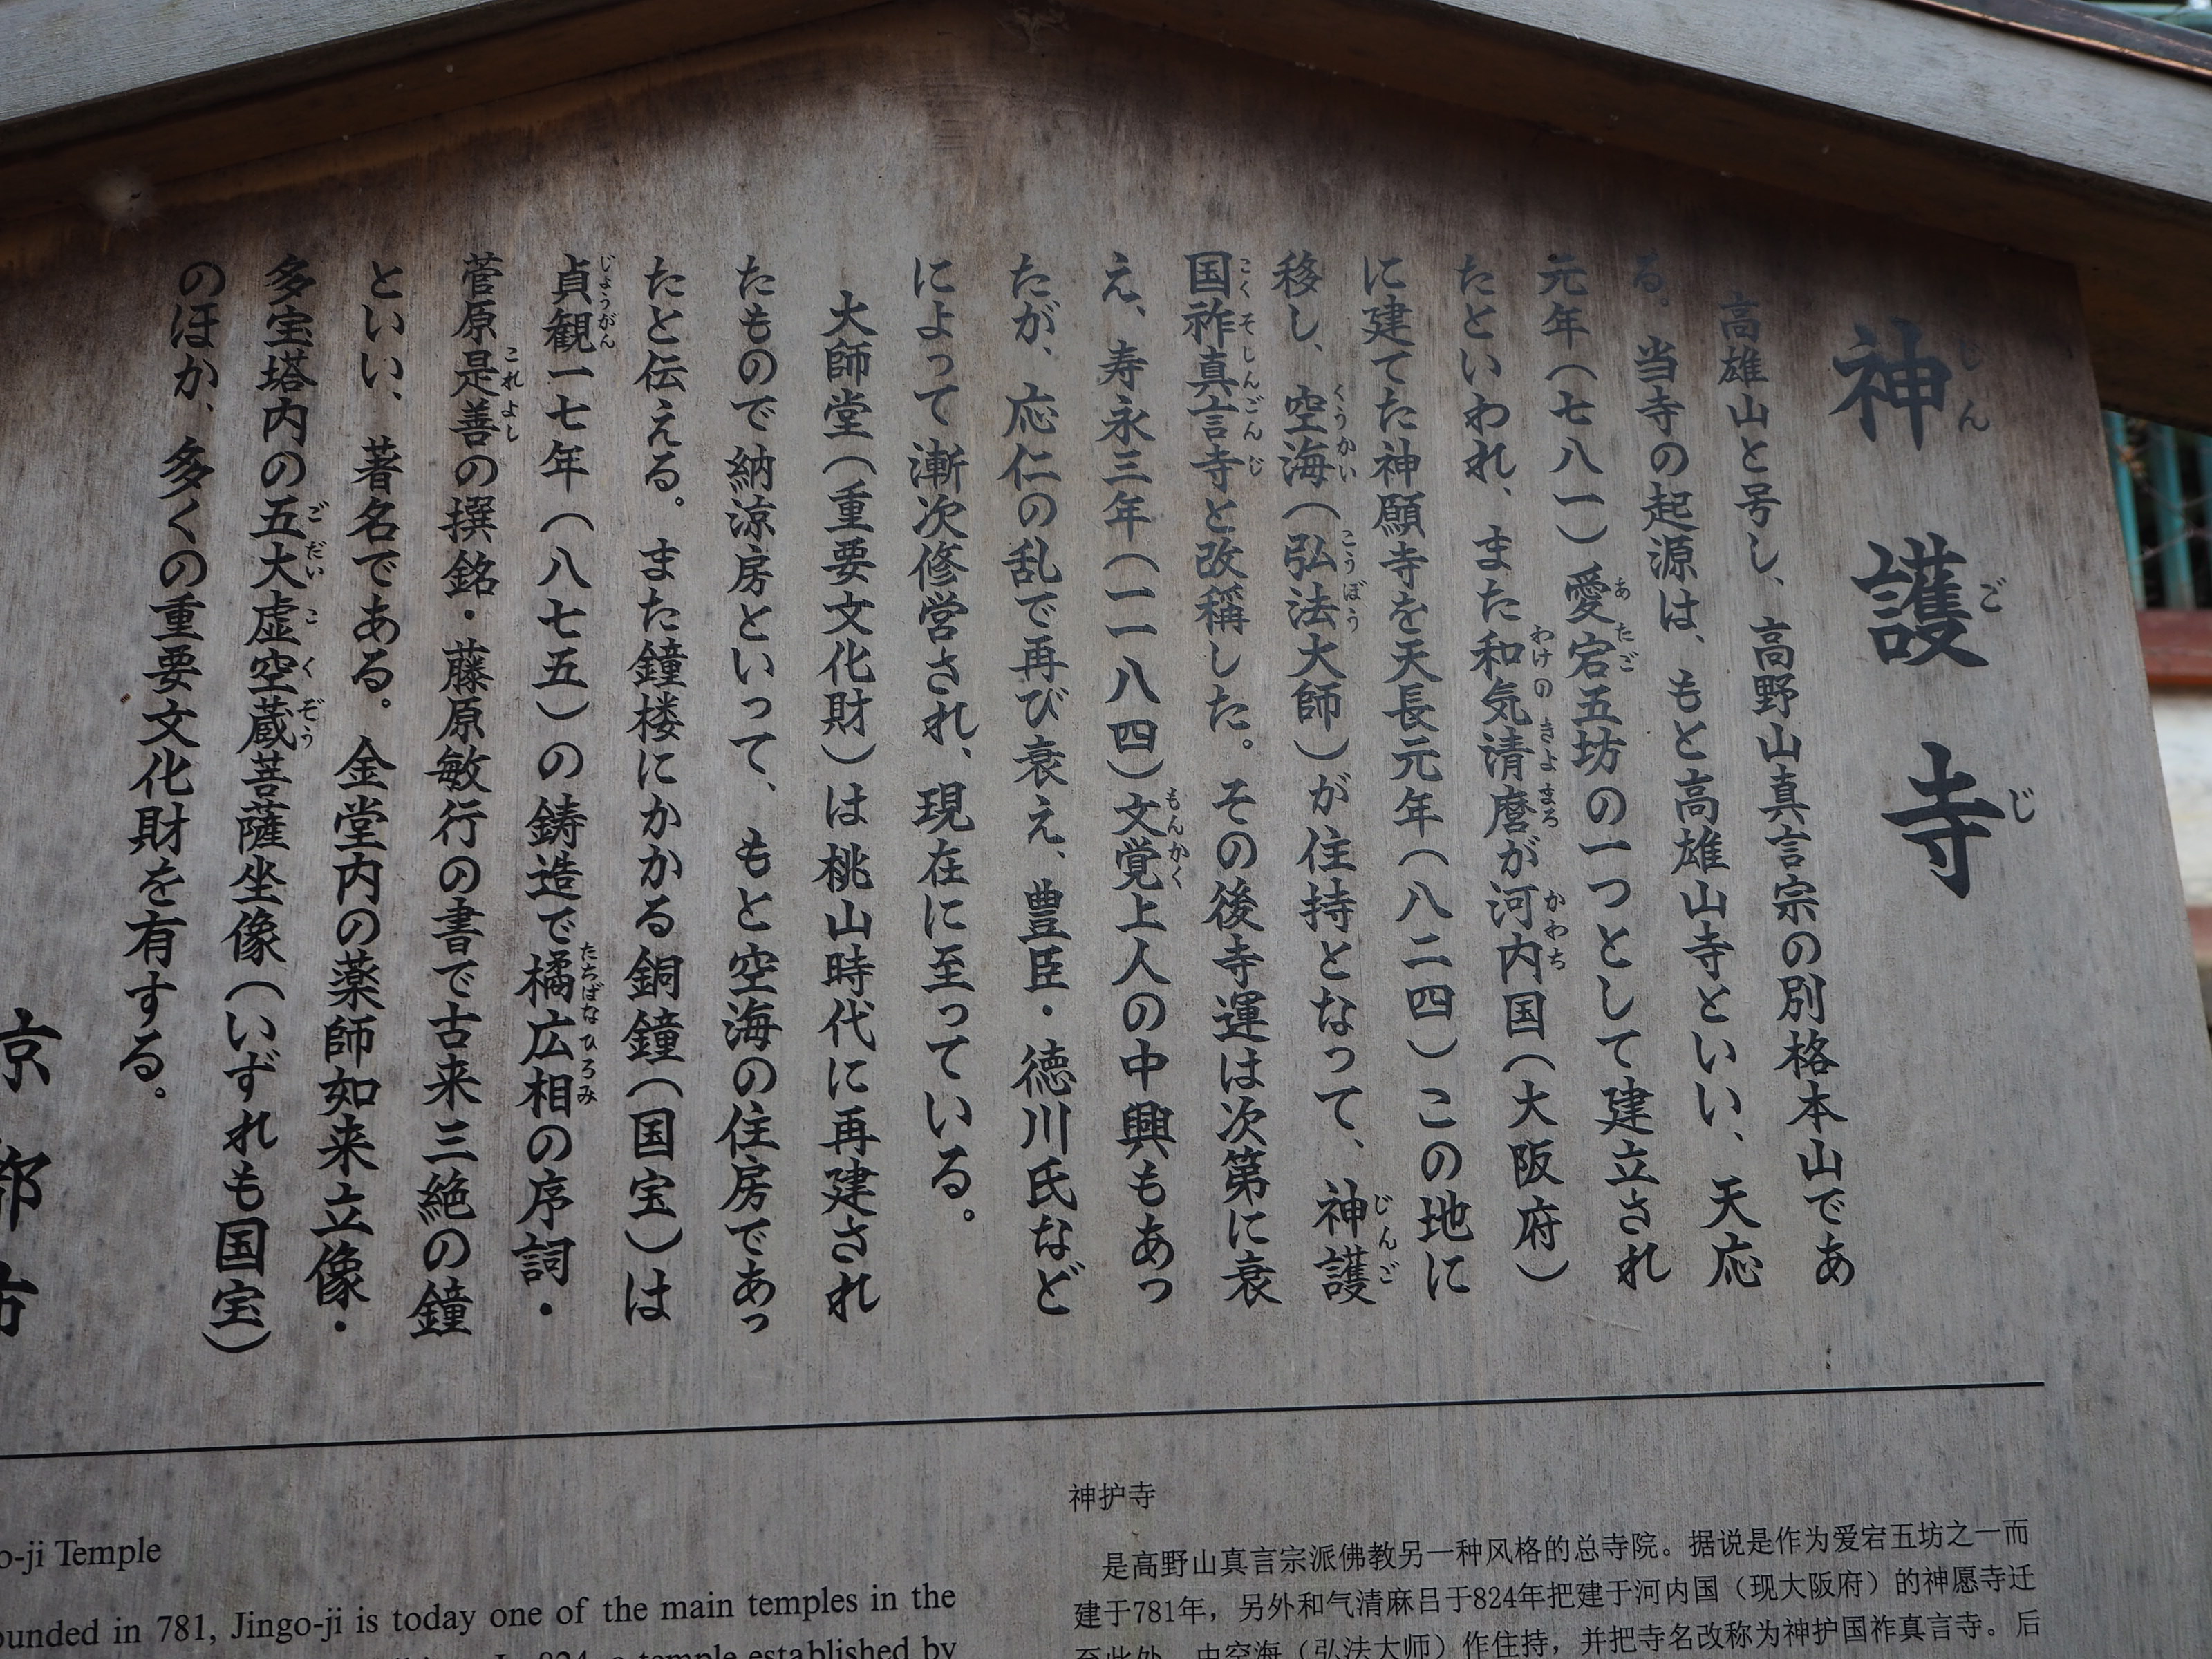 神護寺
じんごじ
高雄山と号し、高野山真言宗の別格本山であ
る。当寺の起源は、もと高雄山寺といい、天応
元年（七八一）愛宕五坊の一つとして建立され
あたご
たといわれ、また和気清麿が河内国（大阪府）
わけのきよまろ
かわち
に建てた神願寺を天長元年（八二四）この地に
移し、空海（弘法大師）が住持となって、神護
くうかい
こうぼう
じんご
国祚真言寺と改稱した。その後寺運は次第に衰
こくそしんごんじ
え、寿永三年（一一八四）文覚上人の中興もあっ
もんかく
たが、応仁の乱で再び衰え、豊臣・徳川氏など
によって漸次修営され、現在に至っている。
大師堂（重要文化財）は桃山時代に再建され
たもので納涼房といって、もと空海の住房であっ
たと伝える。また鐘楼にかかる銅鐘（国宝）は
貞観一七年（八七五）の鋳造で橘広相の序詞・
じょうがん
たちばなひろみ
菅原是善の撰銘・藤原敏行の書で古来三絶の鐘
これよし
といい、著名である。金堂内の薬師如来立像・
多宝塔内の五大虚空蔵菩薩坐像（いずれも国宝）
ごだいこくぞう
のほか、多くの重要文化財を有する。
京都市
o-ji Temple
ounded in 781, Jingo-ji is today one of the main temples in the
a temple established by
神护寺
是高野山真言宗派佛教另一种风格的总寺院。据说是作为爱宕五坊之一而
建于781年，另外和气清麻吕于824年把建于河内国（现大阪府）的神愿寺迁
至此处，由空海（弘法大师）作住持，并把寺名改称为神护国祚真言寺。后